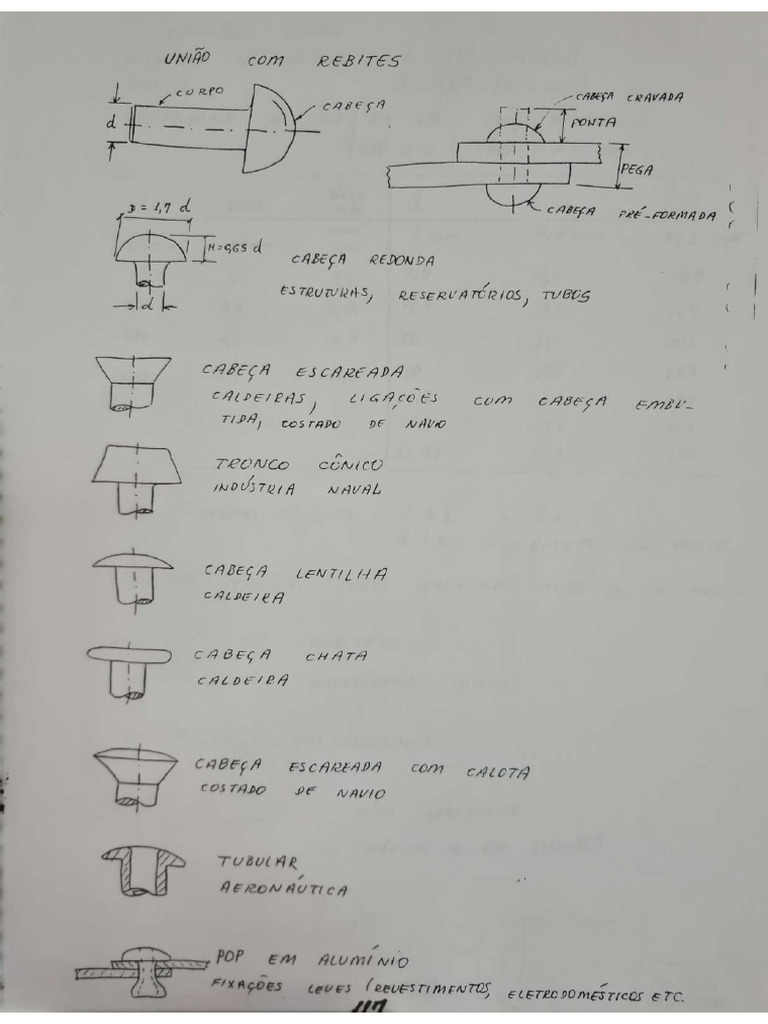 UNIÃO COM REBITES
CORPO
CABEÇA
d
CABEÇA CRAVADA
PONTA
PEGA
CABEÇA PRÉ-FORMADA
D = 1,7 d
H=0,65 d
d
CABEÇA REDONDA
ESTRUTURAS, RESERVATÓRIOS, TUBOS
CABEÇA ESCAREADA
CALDEIRAS, LIGAÇÕES COM CABEÇA EMBU-
TIDA, COSTADO DE NAVIO
TRONCO CÔNICO
INDÚSTRIA NAVAL
CABEÇA LENTILHA
CALDEIRA
CABEÇA CHATA
CALDEIRA
CABEÇA ESCAREADA COM CALOTA
COSTADO DE NAVIO
TUBULAR
AERONÁUTICA
POP EM ALUMÍNIO
FIXAÇÕES LEVES (REVESTIMENTOS, ELETRODOMÉSTICOS ETC.